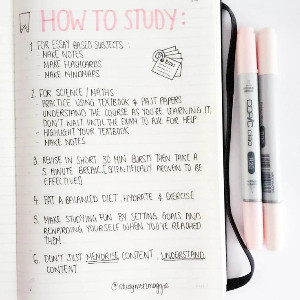 HOW TO STUDY:
1. FOR ESSAY BASED SUBJECTS :
- MAKE NOTES
- MAKE FLASHCARDS
- MAKE MINDMAPS
2. FOR SCIENCE / MATHS
- PRACTICE USING TEXTBOOK & PAST PAPERS
- UNDERSTAND THE COURSE AS YOU'RE LEARNING IT.
DON'T WAIT UNTIL THE EXAM TO ASK FOR HELP
- HIGHLIGHT YOUR TEXTBOOK
- MAKE NOTES
3. REVISE IN SHORT 30 MIN BURSTS THEN TAKE A
5 MINUTE BREAK (SCIENTIFICALLY PROVEN TO BE
EFFECTIVE)
4. EAT A BALANCED DIET, HYDRATE & EXERCISE
5. MAKE STUDYING FUN BY SETTING GOALS AND
REWARDING YOURSELF WHEN YOU'VE REACHED
THEM
6. DON'T JUST MEMORISE CONTENT, UNDERSTAND
CONTENT.
@studywithmaggie
COPIC ciao